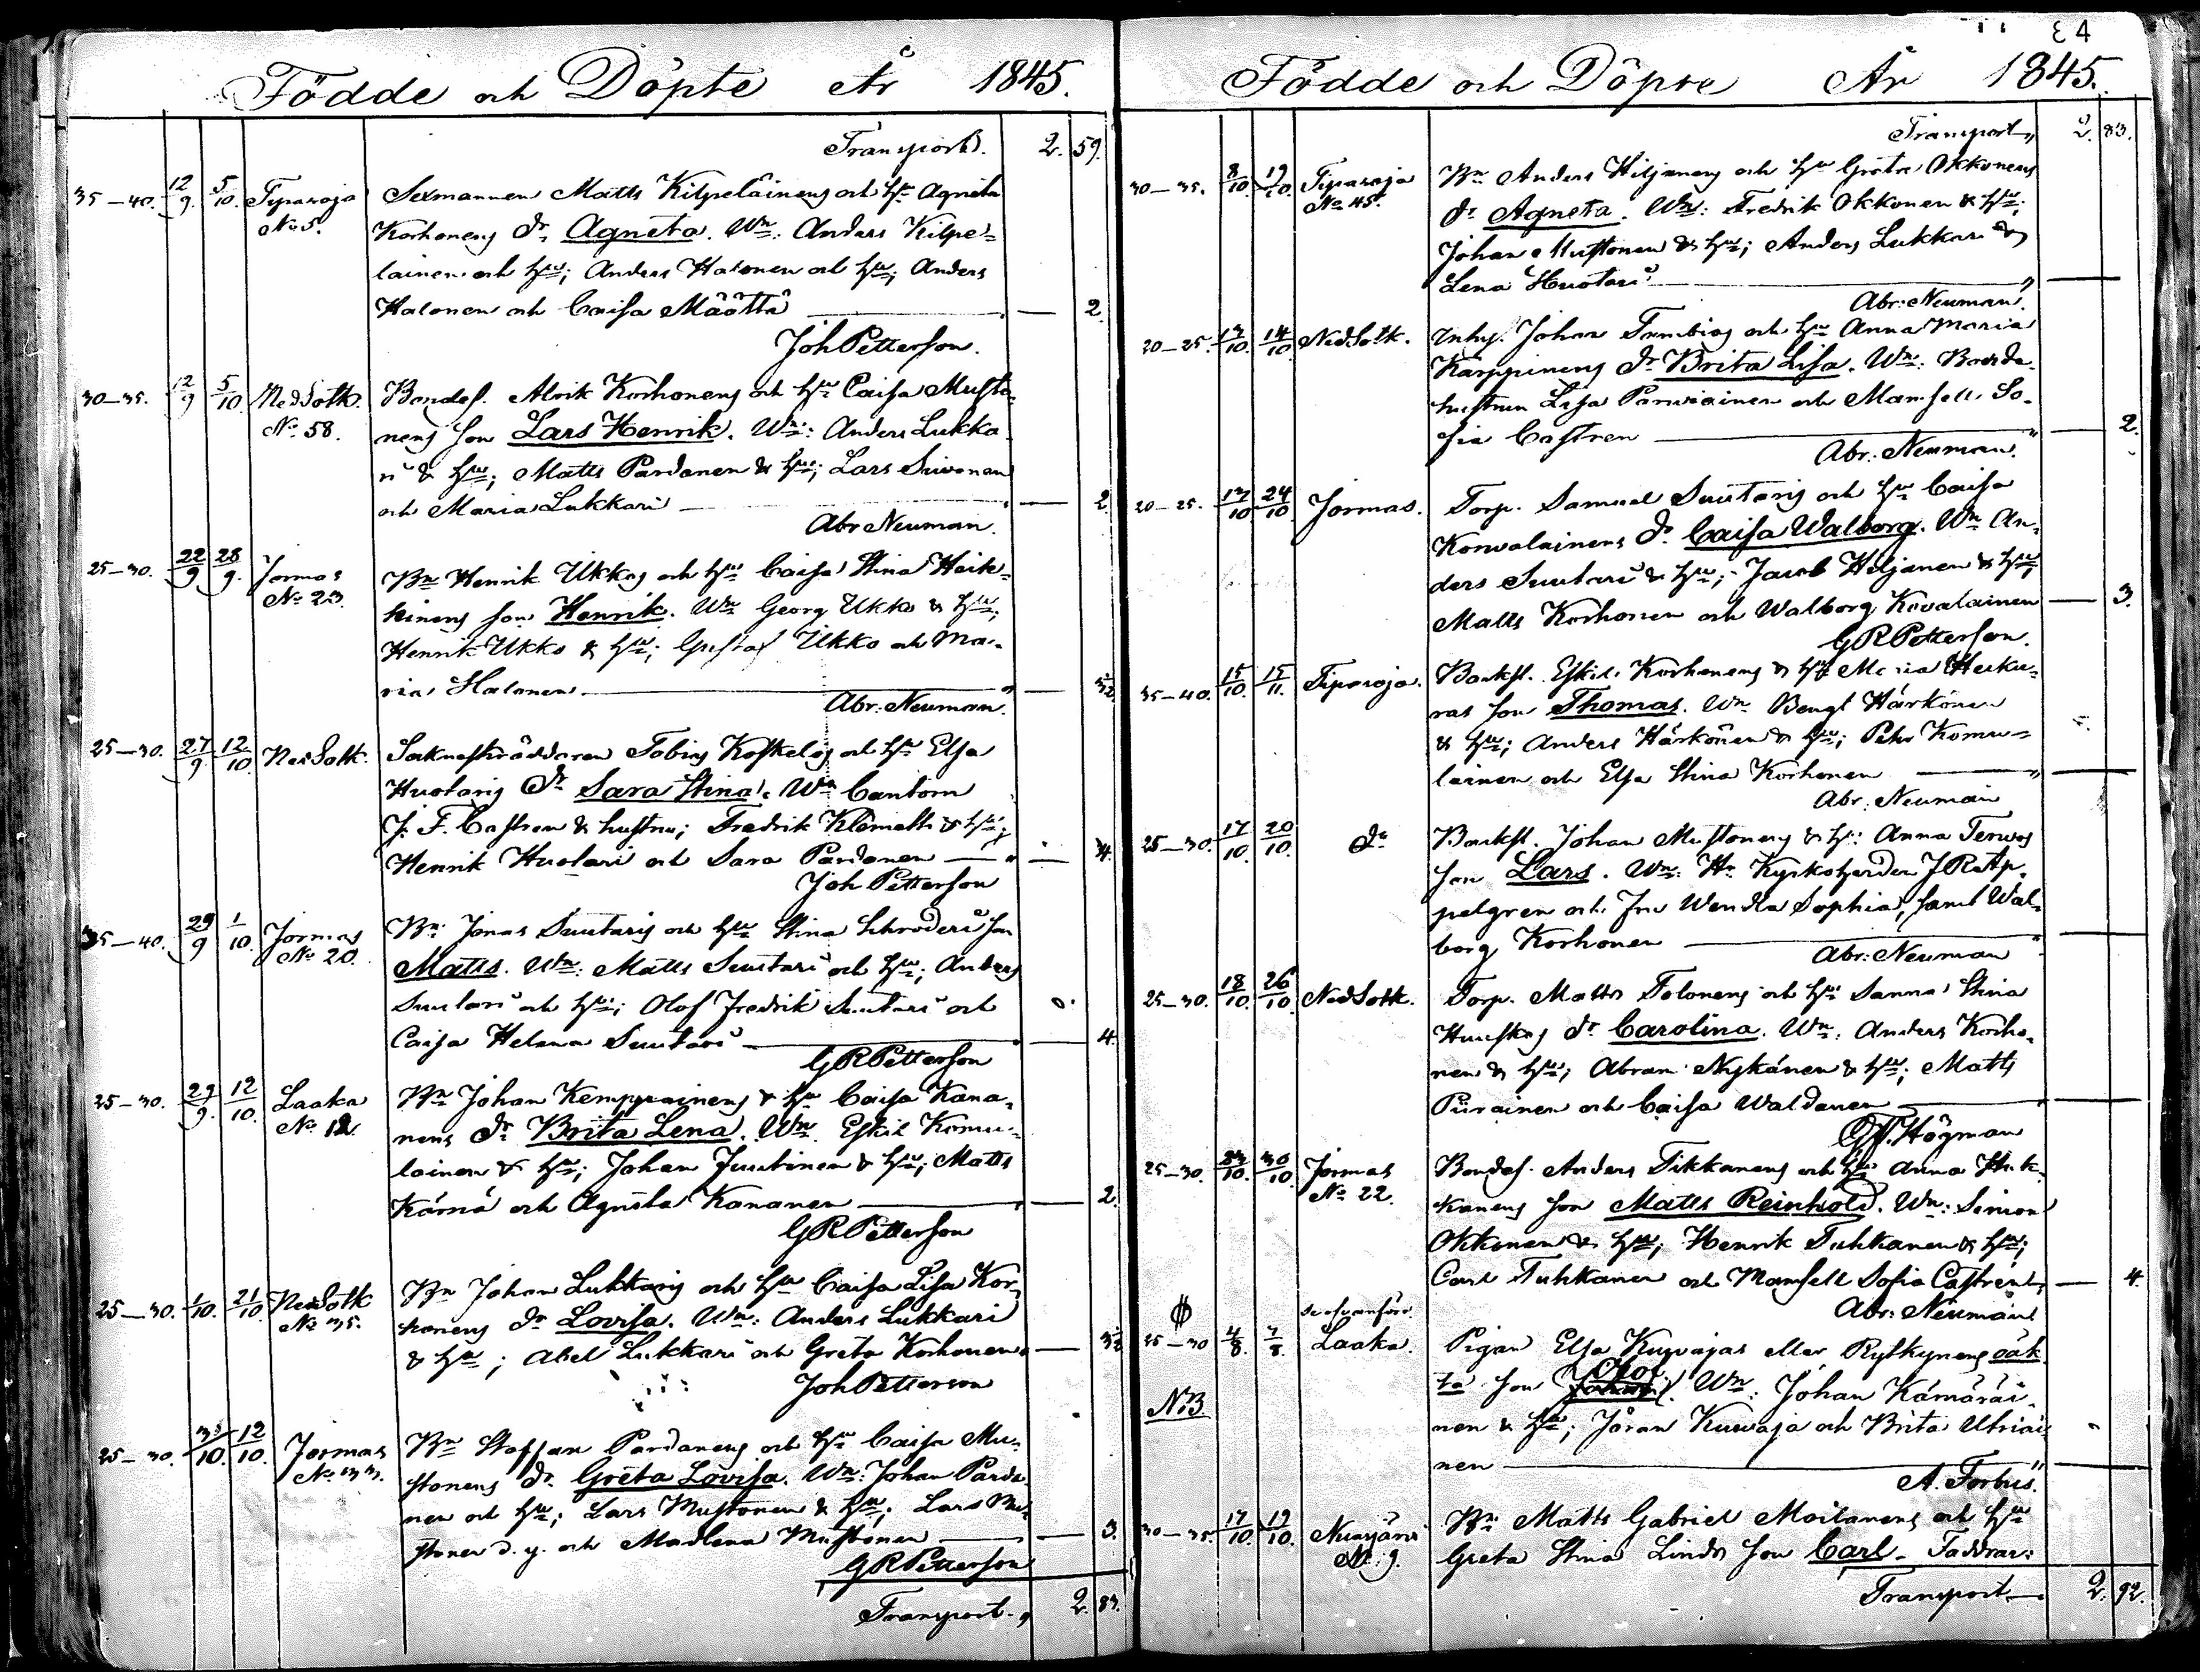 Födde och Döpte År 1845.
Transport. 2. 59.
35–40. 12/9. 5/10. Tiparoja Sexmannen Matts Kilpeläinens och Hu Agneta
No 5. Korhonens dr. Agneta. Wn: Anders Kilpe-
lainen och hu; Anders Halonen och hu; Anders
Halonen och Caisa Määttä — 2.
Joh Petterson.
30–35. 12/9 5/10 NedSotk. Bondes. Alrik Korhonens och hu Caisa Musto-
No. 58. nens son Lars Henrik. Wn: Anders Lukka-
ri & hu; Matts Pardanen & hu; Lars
och Maria Lukkari — 2.
Abr Neuman.
25–30. 22/9 28/9. Jormas Bn Henrik Ukkos och hu Caisa Stina Heik-
No 23. kinens son Henrik. Wn Georg Ukko & hu;
Henrik Ukko & hu; Gustaf Ukko och Ma-
ria Halonen —
Abr: Neuman.
25–30. 27/9 12/10 NedSotk. Tobias Koskelos och hu Elsa
Huotaris dr Sara Stina. Wn Cantorn
J. F. Castren & hustru; Fredrik Klemetti & hu;
Henrik Huotari och Sara Pardanen — 4.
Joh Petterson
35–40. 29/9 1/10. Jormas Bn: Jonas Suutaris och hu Stina Schroderi son
No 20. Matts. Wn: Matts Suutari och hu; Anders
Suutari och hu; Olof Fredrik Suutari och
Caisa Helena Suutari — 4.
G R Petterson
25–30. 29/9. 12/10. Laaka Bn Johan Kemppainens & hu Caisa Kana-
No. 12. nens dr Brita Lena. Wn. Eskil Komu-
lainen & hu; Johan Juutinen & hu; Matts
Kärnä och Agneta Kananen — 2.
G R Petterson
25–30. 1/10. 21/10 NedSotk Bn Johan Lukkaris och hu Caisa Lisa Kor-
No 35. honens dr Lovisa. Wn: Anders Lukkari
& hu; Abel Lukkari och Greta Korhonen —
Joh Petterson
25–30. 3/10. 12/10. Jormas Bn Staffan Pardanens och hu Caisa Mu-
No. 33. stonens dr. Greta Lovisa. Wn: Johan Parda-
nen och hu; Lars Mustonen & hu; Lars Mu-
stonen d. y. och Madlena Mustonen — 3.
G R Petterson
Transport. 2. 83.
Födde och Döpte År 1845.
Transport 2. 83.
30–35. 8/10. 19/10. Tiparoja Bn Anders Hiljanens och hu Greta Okkonens
No 45. dr Agneta. Wn: Fredrik Okkonen & hu;
Johan Mustonen & hu; Anders Lukkari &
Lena Huotari —
Abr: Neuman.
20–25. 12/10. 14/10 NedSotk. Inhy. Johan Tambias och hu Anna Maria
Karppinens dr Brita Lisa. Wn: Bonde-
hustrun Lisa Parviainen och Mamsell So-
fia Castren — 2.
Abr: Neuman.
20–25. 12/10 24/10 Jormas. Torp. Samuel Suutaris och hu Caisa
Konvalainens dr. Caisa Walborg. Wn An-
ders Suutari & hu; Jacob Hiljanen & hu;
Matts Korhonen och Walborg Kovalainen — 3.
G R Petterson.
35–40. 15/10. 15/11. Tiparoja. Backst. Eskil Korhonens & hu Maria Herku-
ras son Thomas. Wn Bengt Härkönen
& hu; Anders Härkönen & hu; Pehr Komu-
lainen och Elsa Stina Korhonen —
Abr: Neuman
25–30. 17/10. 20/10. do Backst. Johan Mustonens & hu: Anna Tervos
son Lars. Wn: Hr Kyrkoherden J R Ap-
pelgren och Fru Wendla Sophia, samt Wal-
borg Korhonen —
Abr: Neuman
25–30. 18/10. 26/10 NedSotk. Torp. Matts Tolonens och hu Sanna Stina
dr Carolina. Wn: Anders Korho-
nen & hu; Abram Nykänen & hu; Matts
Piirainen och Caisa Waldanen —
Högman
25–30. 23/10. 30/10. Jormas Bondes. Anders Tikkanens och hu Anna Huk-
No 22. kanens son Matts Reinhold. Wn: Simon
Okkonen & hu; Henrik Tuhkanen & hu;
Carl Tuhkanen och Mamsell Sofia Castren — 4.
Abr: Neuman
25–30 4/8. 7/8. Laaka. Pigan Elsa Kuvajas eller Rytkynens oäk-
NB. ta son Olof. Wn: Johan Kämäräi-
nen & hu; Jöran Kuvaja och Brita Utriai-
nen —
A. Forbus.
30–35. 17/10. 19/10. Bn Matts Gabriel Moilanens och hu
No. 9. Greta Stina Linds son Carl. Faddrar:
Transport 2. 92.